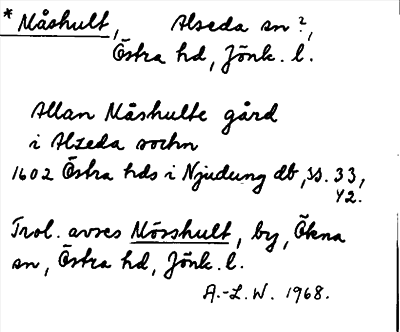 * Måshult, Alseda sn?,
Östra hd, Jönk. l.
Allan Måshulte gård
i Alzeda sochn
1602 Östra hds i Njudung db, ss. 33,
42.
Trol. avses Mösshult, by, Ökna
sn, Östra hd, Jönk. l.
A.-L. W. 1968.